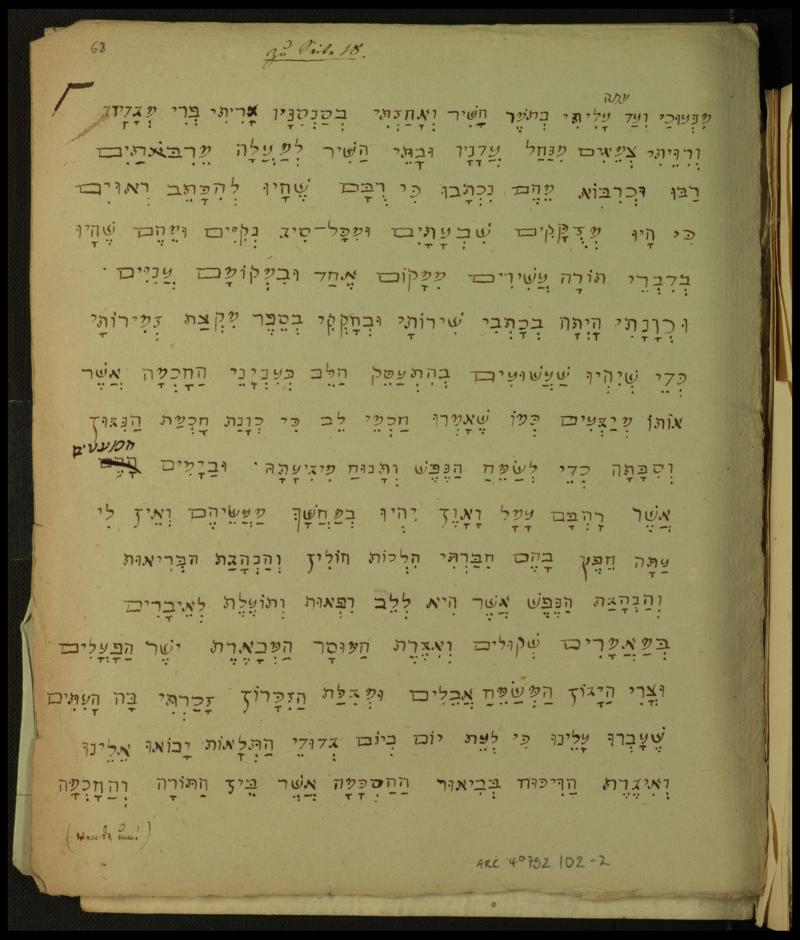 68
zu Seite 18.
עתה
מִנְּעוּרַי וְעַד עָלִיתִי בְּתָמָר הַשִּׁיר וְאָחַזְתִּי בְּסַנְסִנָּיו אָרִיתִי פְּרִי מְגָדָיו
וְרִוֵּיתִי צְמֵאִים מִנַּחַל עֲדָנָיו וּבָתֵּי הַשִּׁיר לְמַעְלָה מֵרִבֹּאתַיִם
רַבּוּ וּכְרִבּוֹא מֵהֶם נִכְתְּבוּ כִּי רֻבָּם שֶׁהָיוּ לְהִכָּתֵב רְאוּיִם
כִּי הָיוּ מְזֻקָּקִים שִׁבְעָתַיִם וּמִכָּל־סִיג נְקִיִּים וּמֵהֶם שֶׁהָיוּ
בְּדִבְרֵי תוֹרָה עֲשִׁירִים מִמָּקוֹם אֶחָד וּבִמְקוֹמָם עֲנִיִּים ·
וְכַוָּנָתִי הָיְתָה בְּכָתְבִי שִׁירוֹתַי וּבְחֻקְקִי בְסֵפֶר מִקְצַת זְמִירוֹתַי
כְּדֵי שֶׁיִּהְיוּ שַׁעֲשׁוּעִים בְּהִתְעַסֵּק הַלֵּב בְּעִנְיָנֵי הַחָכְמָה אֲשֶׁר
אוֹתוֹ מְיַגְּעִים כְּמוֹ שֶׁאָמְרוּ חַכְמֵי לֵב כִּי כַוָּנַת חָכְמַת הַנִּגּוּן
המעטים
וְסִבָּתָהּ כְּדֵי לְשַׂמֵּחַ הַנֶּפֶשׁ וְתָנוּחַ מִיגִיעָתָהּ · וּבַיָּמִים
אֲשֶׁר רָהְבָּם עָמָל וָאָוֶן יִהְיוּ בְמַחְשָׁךְ מַעֲשֵׂיהֶם וְאֵין לִי
עַתָּה חֵפֶץ בָּהֶם חִבַּרְתִּי הִלְכוֹת חוּלִין וְהַנְהָגַת הַבְּרִיאוּת
וְהַנְהָגַת הַנֶּפֶשׁ אֲשֶׁר הִיא לְלֵב רִפְאוּת וְתוֹעֶלֶת לְאֵיבָרִים
בְּמַאֲמָרִים שְׁקוּלִים וְאִגֶּרֶת הַמּוּסָר הַמְבָאֶרֶת יֹשֶׁר הַפְּעָלִים
וּצְרִי הַיָּגוֹן הַמְשַׂמֵּחַ אֲבֵלִים וּמְגִלַּת הַזִּכָּרוֹן זָכַרְתִּי בָהּ הָעִתִּים
שֶׁעָבְרוּ עָלֵינוּ כִּי לְעֵת יוֹם בְּיוֹם גְּדוּדֵי הַתְּלָאוֹת יָבוֹאוּ אֵלֵינוּ
וְאִגֶּרֶת הַוִּיכּוּחַ בְּבֵיאוּר הַהַסְכָּמָה אֲשֶׁר בֵּין הַתּוֹרָה וְהַחָכְמָה
(wende um!)
ARC 4° 792 / D2-2